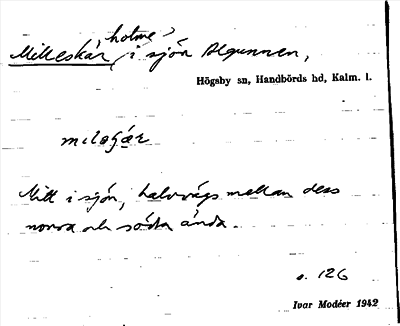 holme
Milleskär, i sjön Algunnen,
Högsby sn, Handbörds hd, Kalm. l.
Mitt i sjön, halvvägs mellan dess
norra och södra ända.
s. 126
Ivar Modéer 1942